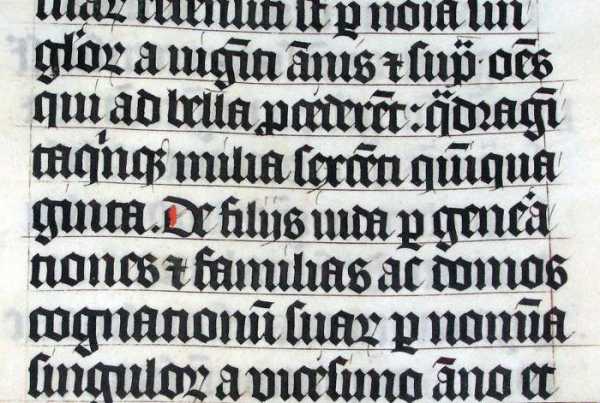 suaꝝ recensiti sūt ꝑ noīa sin
gloꝝ a uigīti ānis ⁊ supͣ· oēs
qui ad bella ꝓcederēt: qͣdragī
taqͥnqꝫ milia sexcēti qͥnqua
ginta. De filijs iuda ꝑ geneͣ
tiones ⁊ familias ac domos
cognationū suaꝝ ꝑ nomīa
singuloꝝ a vicesimo āno et